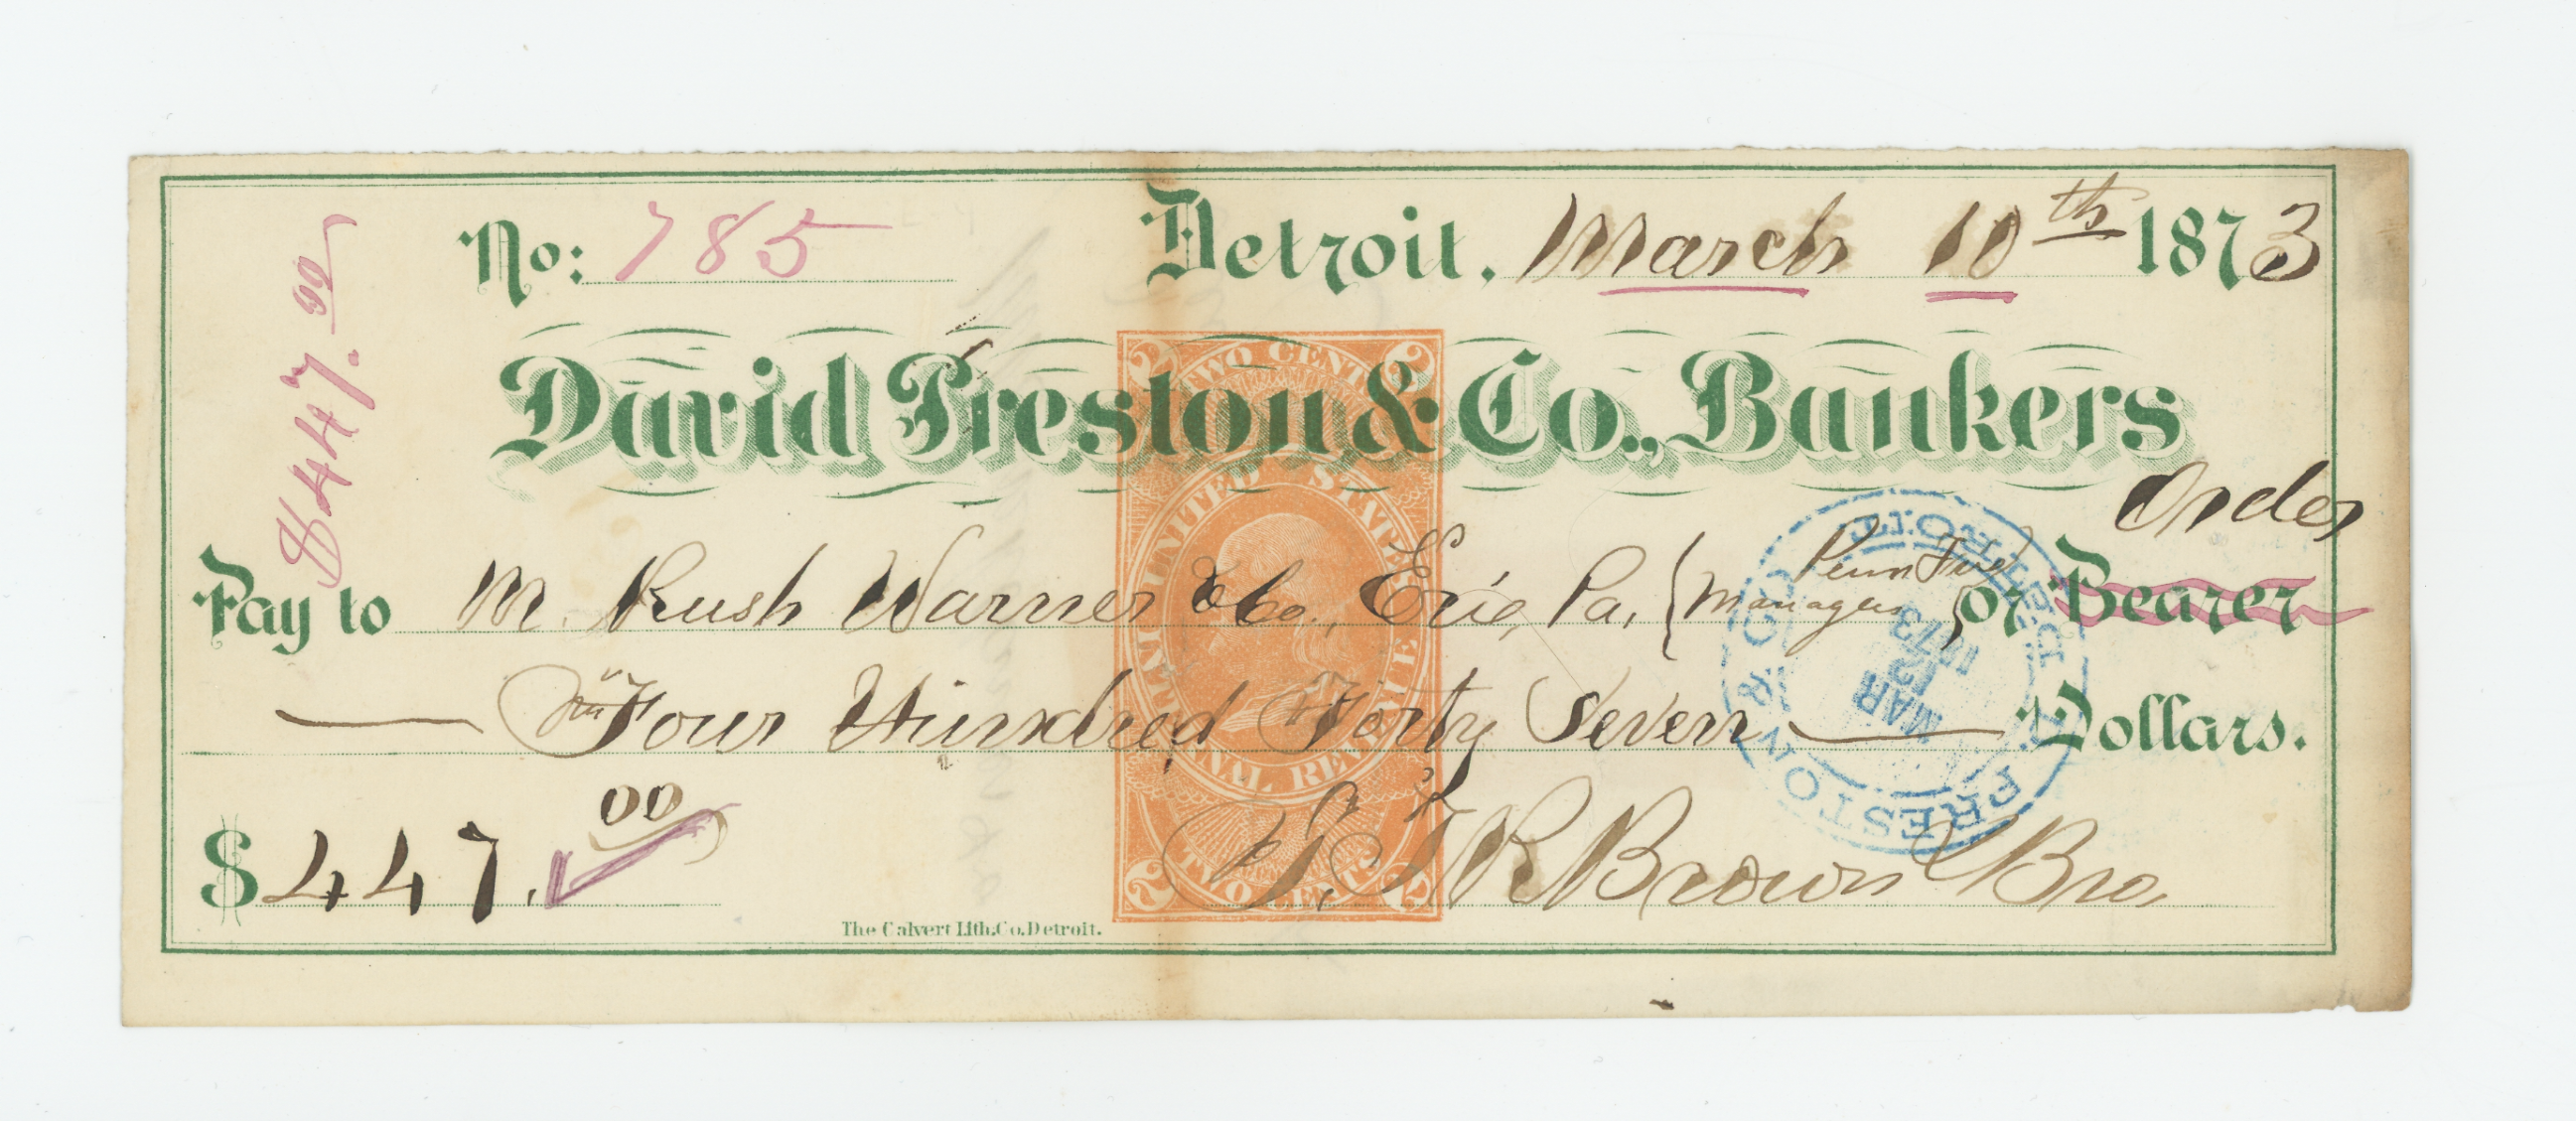 No: 785
Detroit, March 10th 1873
$447.00
David Preston & Co., Bankers
TWO CENTS
2 2
UNITED STATES
INTERNAL REVENUE
Order
Pay to M. Rush Warner & Co., Erie, Pa, { Managers Penn } or Bearer
Four Hundred Forty Seven Dollars.
D. PRESTON & CO. DETROIT
MAR 12 1873
$447.00
Brown & Bro,
2 2
TWO CENTS
The Calvert Lith. Co. Detroit.